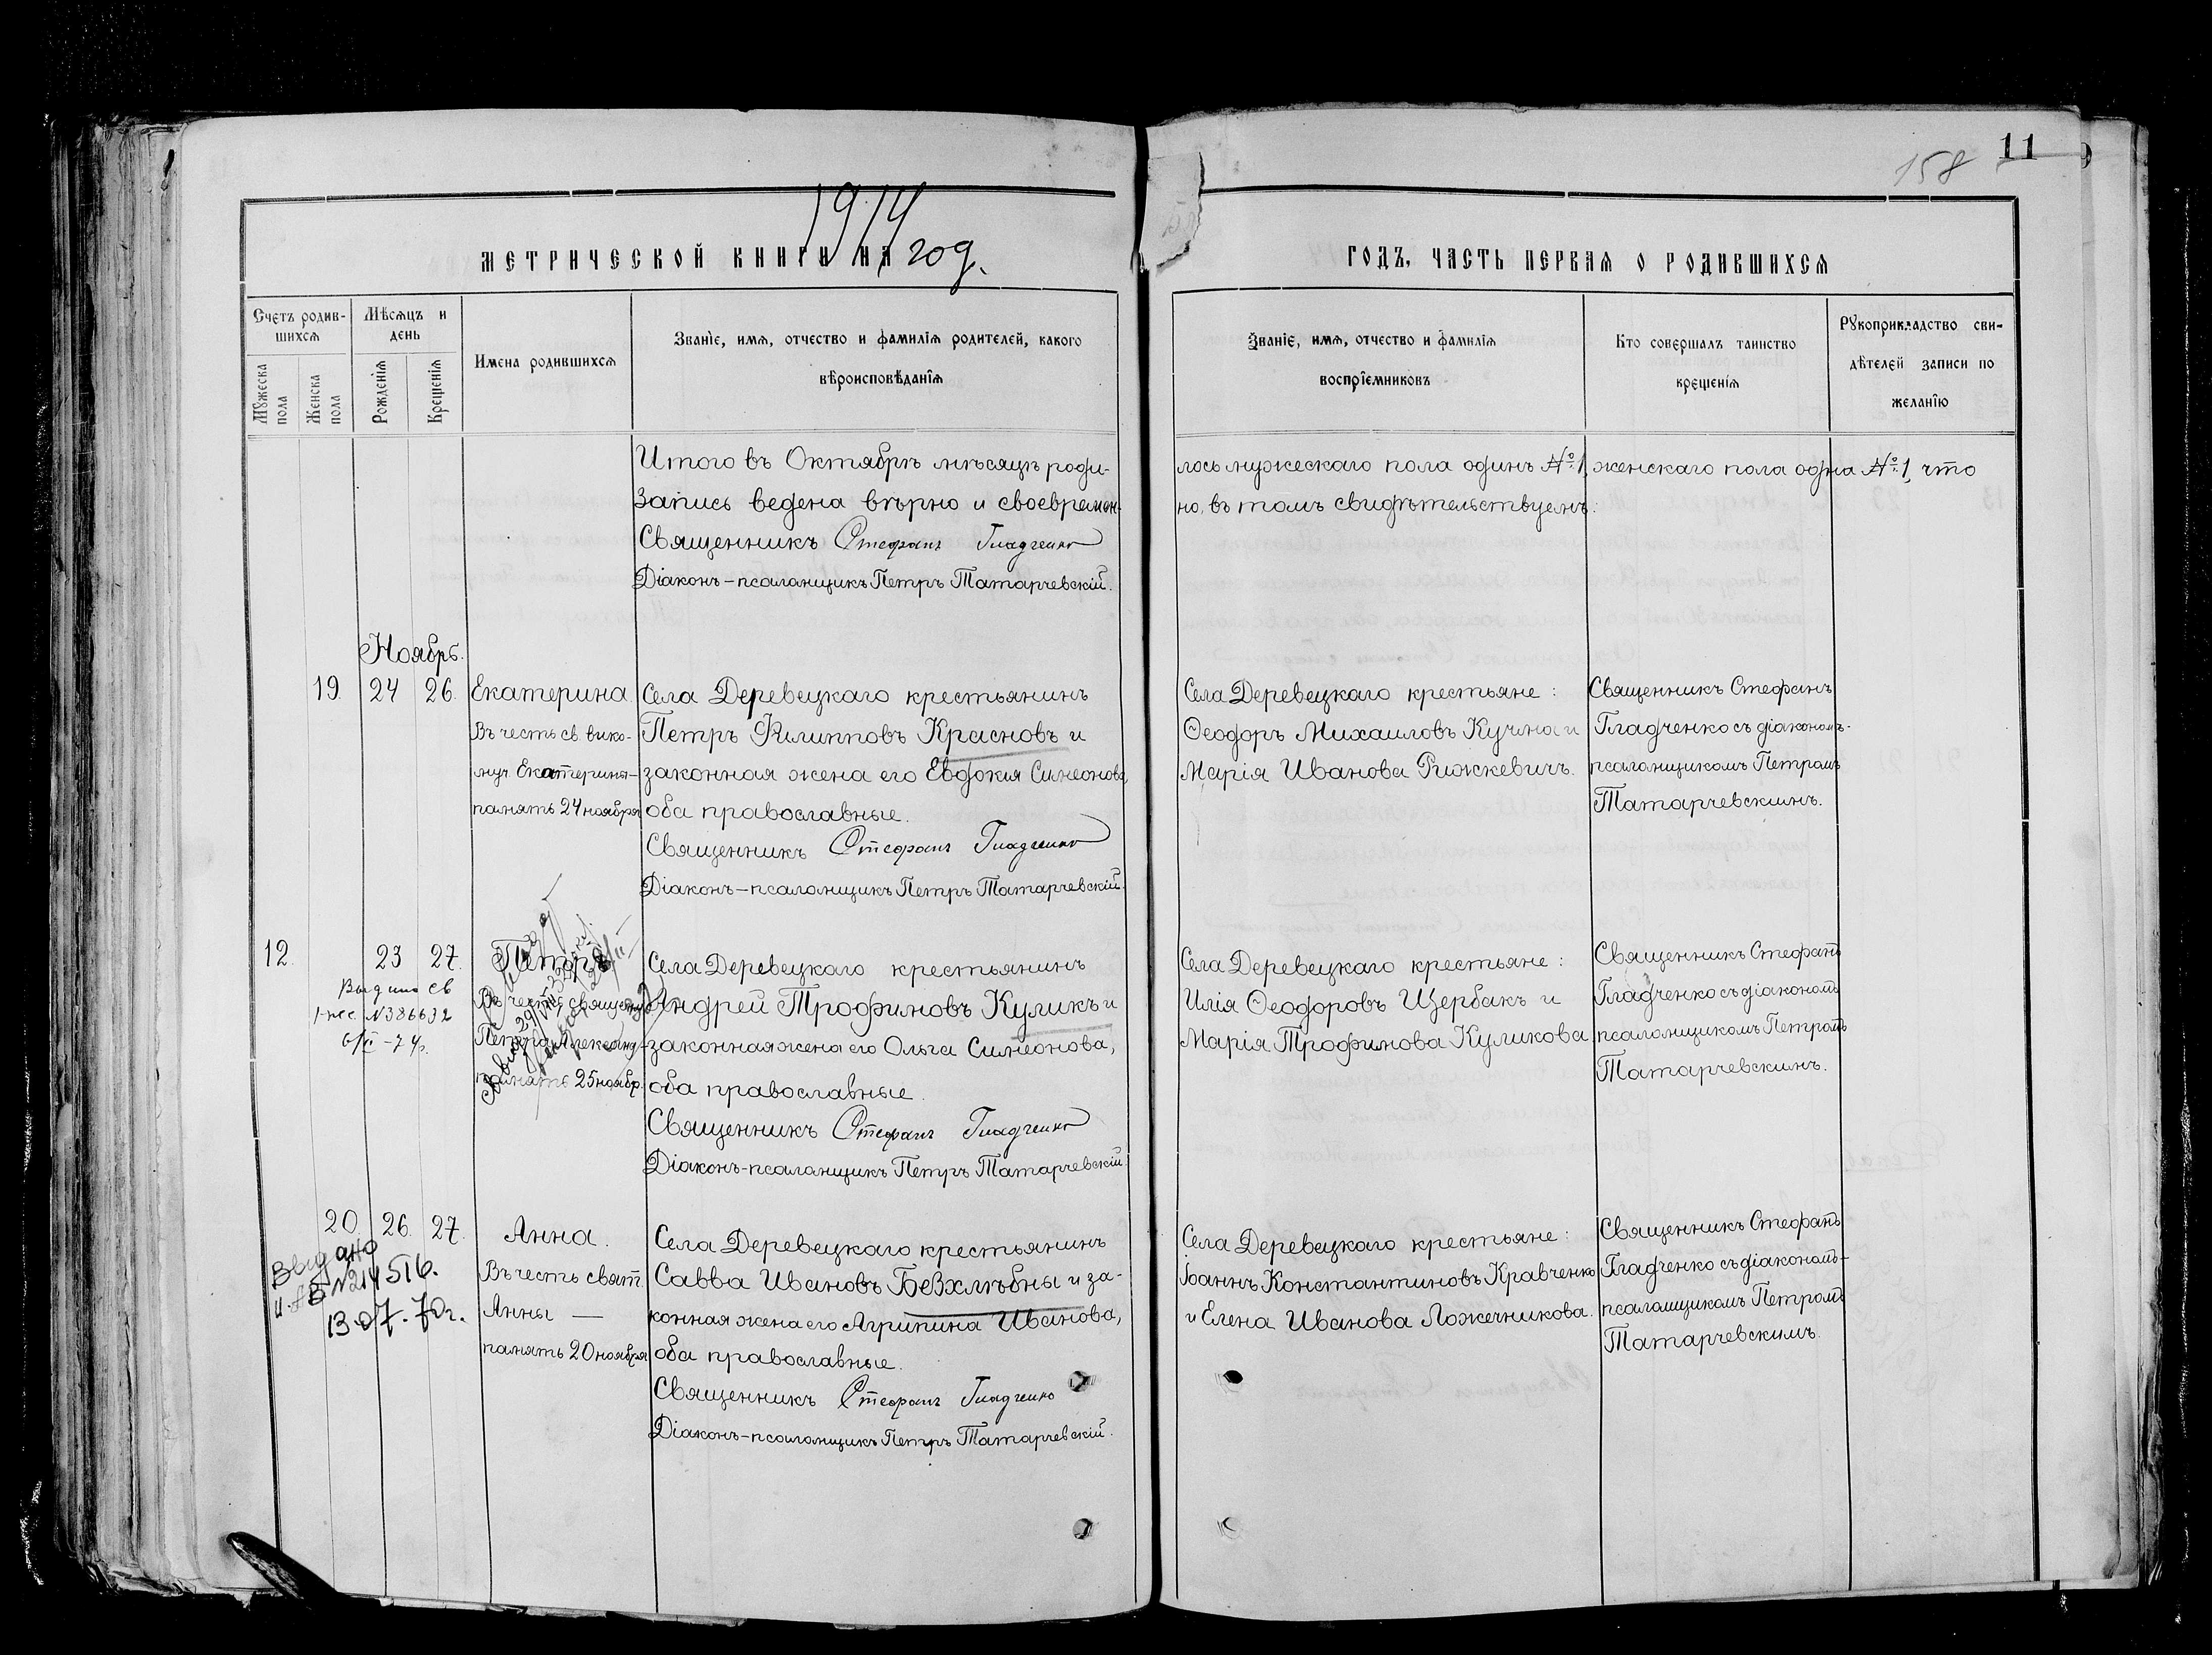 11
158
1914 год.
МЕТРИЧЕСКОЙ КНИГИ НА
ГОДЪ, ЧАСТЬ ПЕРВАЯ О РОДИВШИХСЯ
Счетъ родив-
шихся
Мѣсяцъ и
день
Мужеска
пола
Женска
пола
Рожденія
Крещенія
Имена родившихся
Званіе, имя, отчество и фамилія родителей, какого
вѣроисповѣданія
Званіе, имя, отчество и фамилія
воспріемниковъ
Кто совершалъ таинство
крещенія
Рукоприкладство сви-
дѣтелей записи по
желанію
Итого въ Октябрѣ мѣсяцѣ роди-
лось мужескаго пола одинъ №1, женскаго пола одна №1, что
Запись ведена вѣрно и своевремен-
но, въ томъ свидѣтельствуемъ:
Священникъ Стефанъ Гладченко
Діаконъ-псаломщикъ Петръ Татарчевскій.
Ноябрь.
19. 24 26.
Екатерина.
Въ честь св. вико-
муч. Екатерины-
память 24 ноября
Села Деревецкаго крестьянинъ
Петръ Филипповъ Красновъ и
законная жена его Евдокия Симеонова,
оба православные.
Священникъ Стефанъ Гладченко
Діаконъ-псаломщикъ Петръ Татарчевскій.
Села Деревецкаго крестьяне:
Ѳеодоръ Михаиловъ Кучма и
Марія Иванова Рижкевичъ.
Священникъ Стефанъ
Гладченко съ діакономъ-
псаломщикомъ Петромъ
Татарчевскимъ.
12. 23 27.
Выдано св
N386632
Петръ
Въ честь священ
Петра Александ-
память 25 ноябр.
Села Деревецкаго крестьянинъ
Андрей Трофимовъ Куликъ и
законная жена его Ольга Симеонова,
оба православные.
Священникъ Стефанъ Гладченко
Діаконъ-псаломщикъ Петръ Татарчевскій
Села Деревецкаго крестьяне:
Илія Ѳеодоровъ Щербакъ и
Марія Трофимова Куликова.
Священникъ Стефанъ
Гладченко съ діакономъ
псаломщикомъ Петромъ
Татарчевскимъ.
20. 26. 27.
Выдано
N214516.
13-07-70г.
Анна.
Въ честь свят.
Анны —
память 20 ноября
Села Деревецкаго крестьянинъ
Савва Ивановъ Безхлѣбны и за-
конная жена его Агрипина Иванова,
оба православные.
Священникъ Стефанъ Гладченко
Діаконъ-псаломщикъ Петръ Татарчевскій.
Села Деревецкаго крестьяне:
Іоаннъ Константиновъ Кравченко
и Елена Иванова Ложечникова.
Священникъ Стефанъ
Гладченко съ діакономъ-
псаломщикомъ Петромъ
Татарчевскимъ.